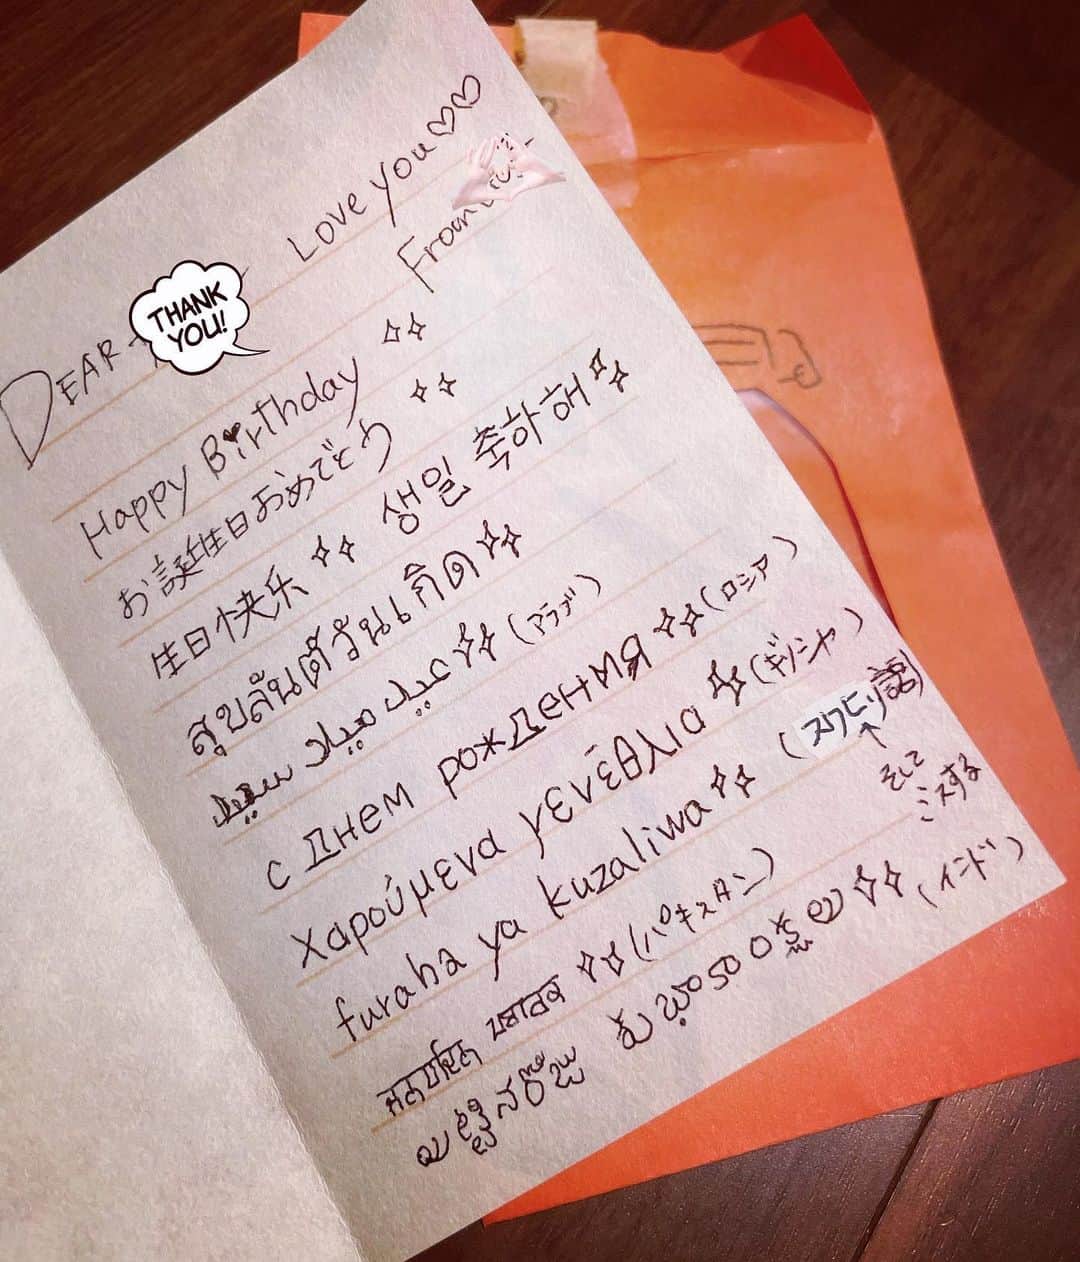 DEAR
THANK
YOU!
Love you♡♡
From
Happy Birthday ✧✧
お誕生日おめでとう ✧✧
生日快乐 ✧✧ 생일 축하해 ✧✧
สุขสันต์วันเกิด ✧✧
عيد ميلاد سعيد ✧✧ (アラブ)
с Днем рожденмя ✧✧ (ロシア)
Χαρούμενα γενέθλια ✧✧ (ギリシャ)
furaha ya kuzaliwa ✧✧ (スワヒリ語)
↑
そして
ミスする
✧✧ (パキスタン)
పుట్టినరోజు ✧✧ (インド)